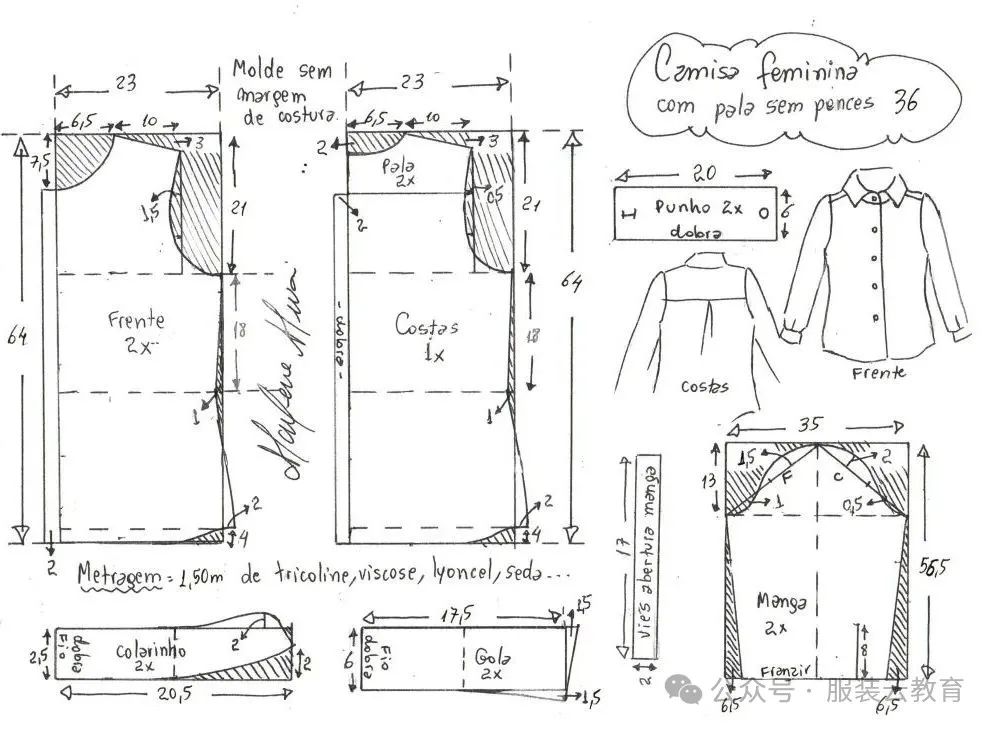 Camisa feminina
com pala sem pences 36
Molde sem
margem
de costura.
23
6,5
10
3
7,5
1,5
21
64
Frente
2x
18
1
2
4
2
23
6,5
10
3
2
Pala
2x
0,5
21
2
64
-dobra-
Costas
1x
18
1
2
4
Marlene Mukai
20
Punho 2x
dobra
6
costas
Frente
Metragem = 1,50m de tricoline, viscose, lyoncel, seda...
2,5
dobra
Fio
Colarinho
2x
2
2
20,5
17,5
1,5
6
dobra
Fio
Gola
2x
1,5
17
Viés abertura manga
2
35
13
1,5
F
C
2
1
0,5
56,5
Manga
2x
8
Franzir
6,5
6,5
公众号 · 服装云教育